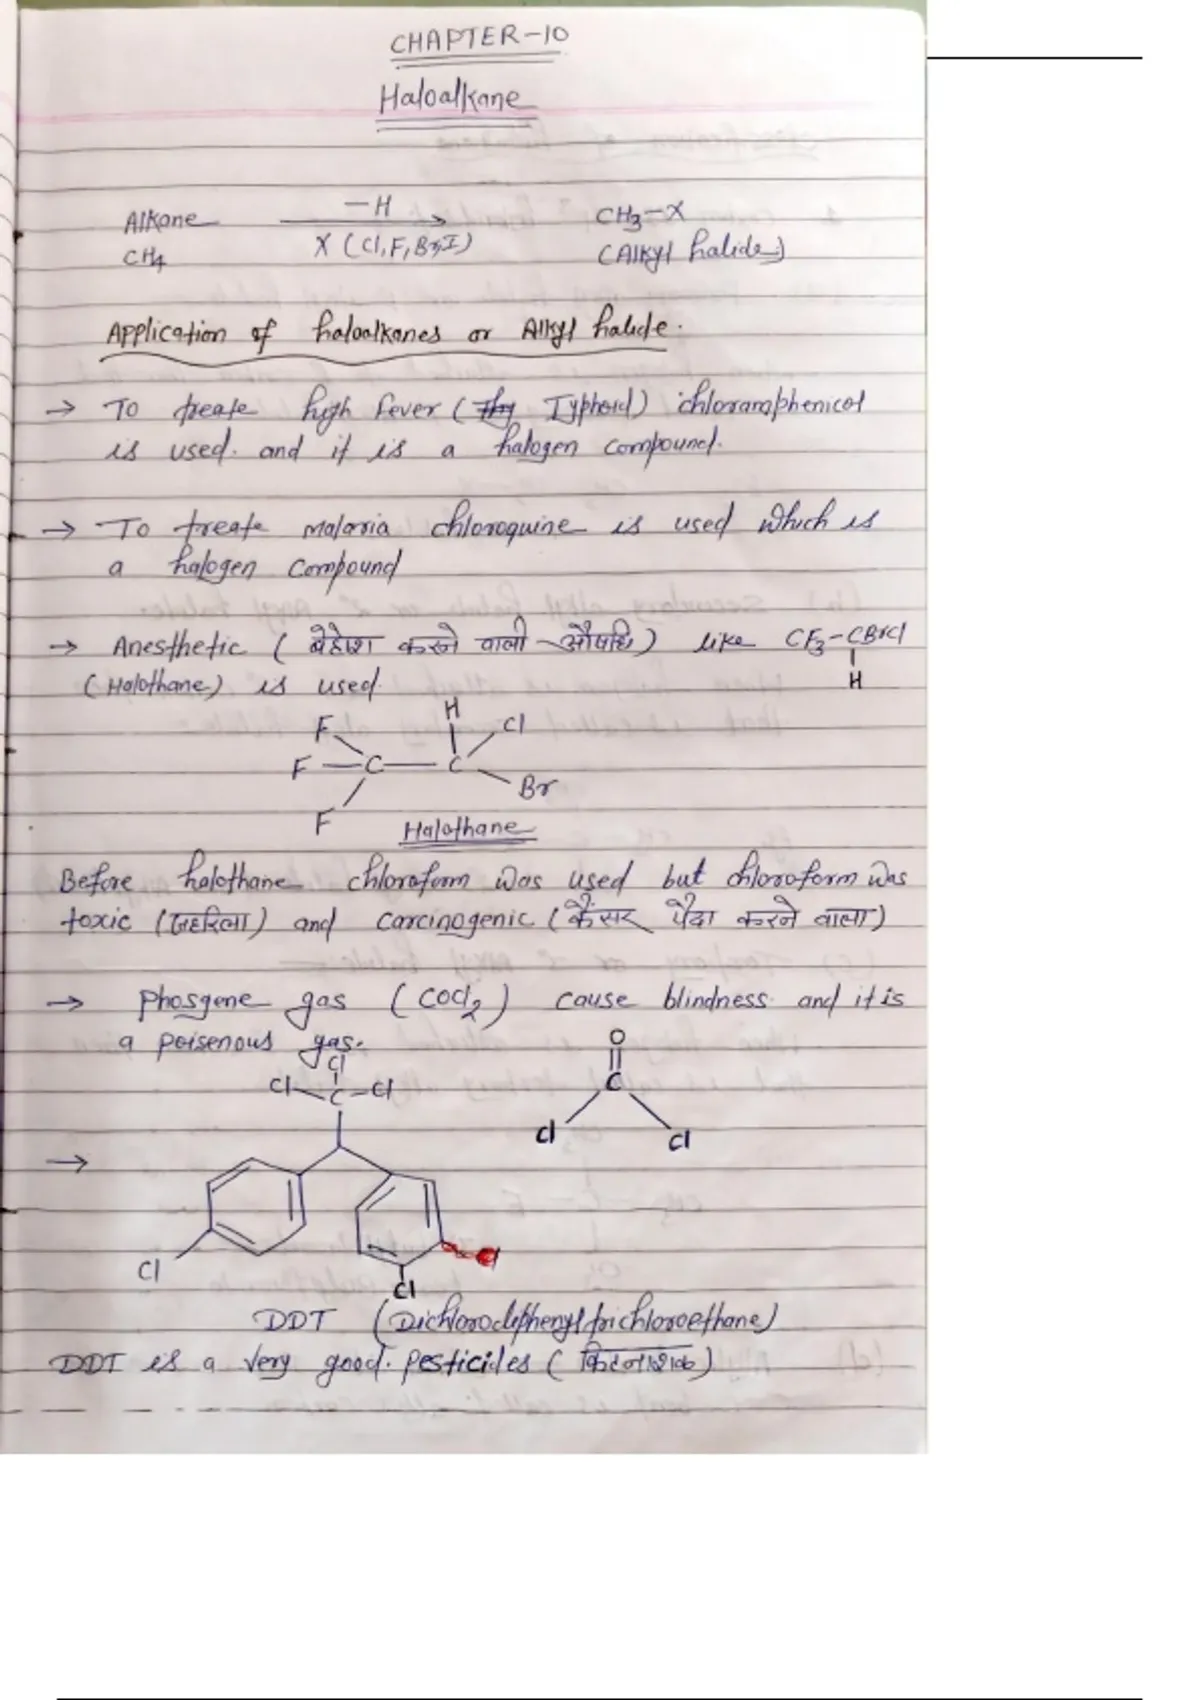 CHAPTER-10
Haloalkane
Alkane —H CH3-X
CH4 X (Cl, F, Br, I) (Alkyl halide)
Application of haloalkanes or Alkyl halide.
→ To treate high fever (Typhoid) chloramphenicol
is used. and it is a halogen compound.
→ To treate malaria chloroquine is used which is
a halogen compound
→ Anesthetic (बेहोश करने वाली औषधि) like CF3-CBrCl
(Halothane) is used. H
H
F Cl
F — C — C
Br
F Halothane
Before halothane chloroform was used but chloroform was
toxic (जहरिला) and carcinogenic (कैंसर पैदा करने वाला)
→ Phosgene gas (COCl2) cause blindness and it is
a poisenous gas.
O
Cl
Cl-C-Cl C
Cl Cl
→
Cl
Cl
DDT (Dichlorodiphenyltrichloroethane)
DDT is a very good. pesticides (किटनाशक)